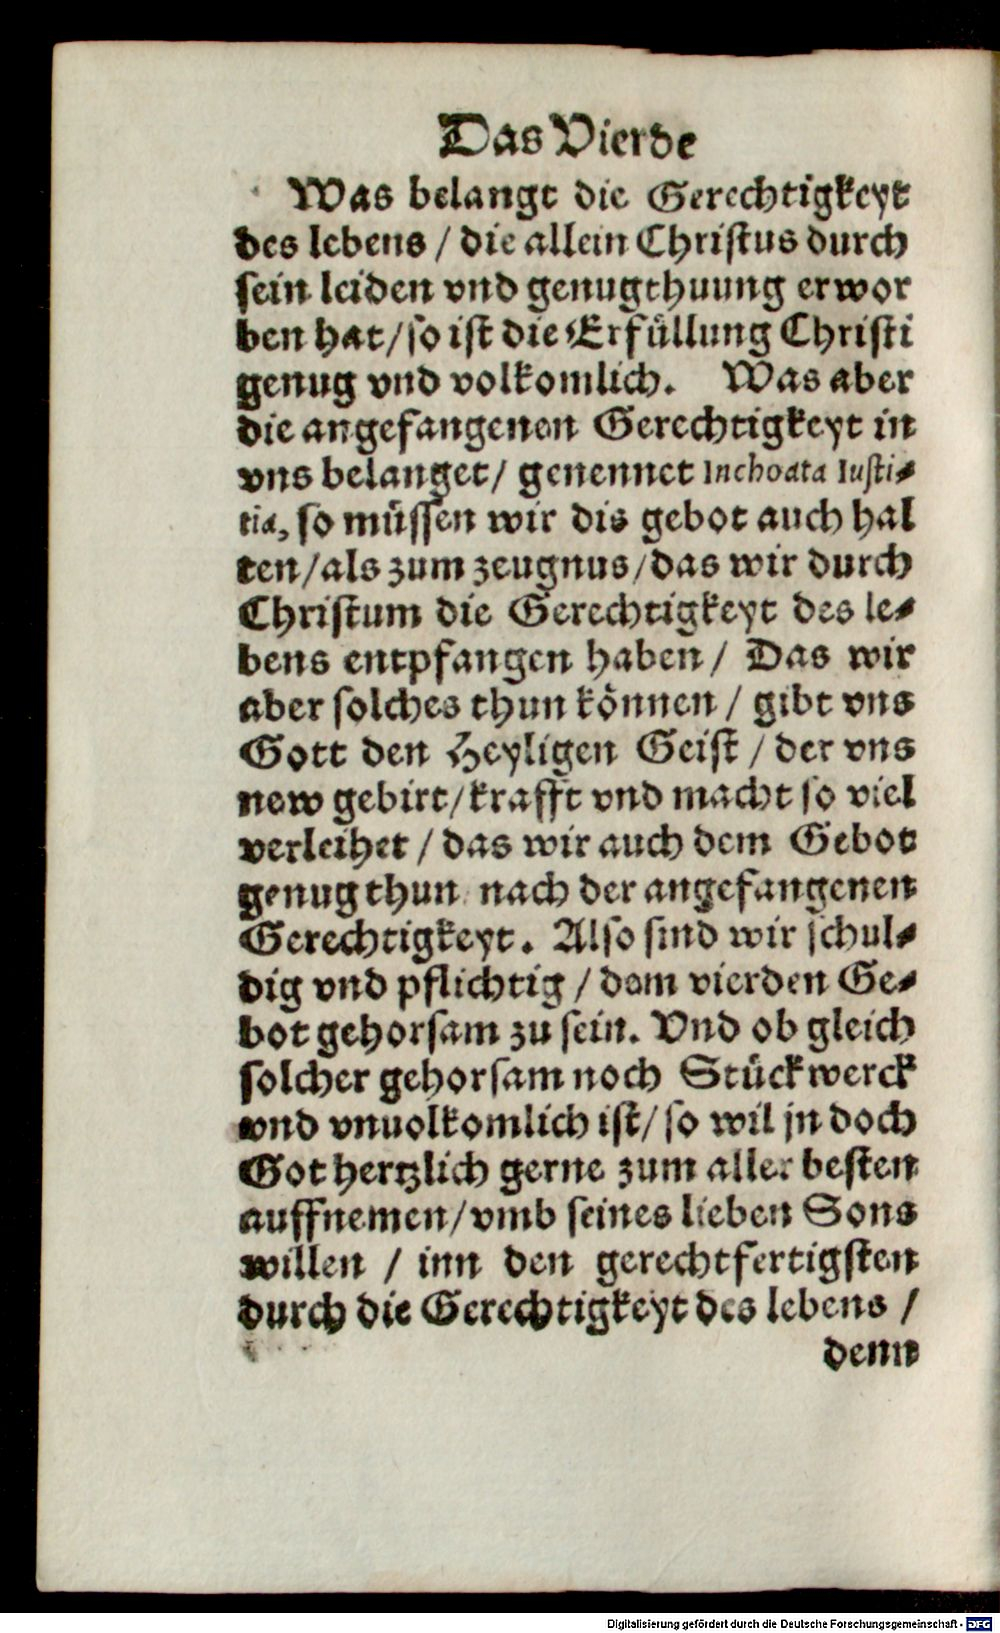 Das Vierde
Was belangt die Gerechtigkeyt
des lebens / die allein Christus durch
sein leiden vnd genugthuung erwor
ben hat / so ist die Erfüllung Christi
genug vnd volkomlich. Was aber
die angefangenen Gerechtigkeyt in
vns belanget / genennet Inchoata Iusti⸗
tia, so müssen wir dis gebot auch hal
ten / als zum zeugnus / das wir durch
Christum die Gerechtigkeyt des le⸗
bens entpfangen haben / Das wir
aber solches thun können / gibt vns
Gott den Heyligen Geist / der vns
new gebirt / krafft vnd macht so viel
verleihet / das wir auch dem Gebot
genug thun nach der angefangenen
Gerechtigkeyt. Also sind wir schul⸗
dig vnd pflichtig / dem vierden Ge⸗
bot gehorsam zu sein. Vnd ob gleich
solcher gehorsam noch Stückwerck
vnd vnuolkomlich ist / so wil jn doch
Got hertzlich gerne zum aller besten
auffnemen / vmb seines lieben Sons
willen / inn den gerechtfertigsten
durch die Gerechtigkeyt des lebens /
denn
Digitalisierung gefördert durch die Deutsche Forschungsgemeinschaft - DFG